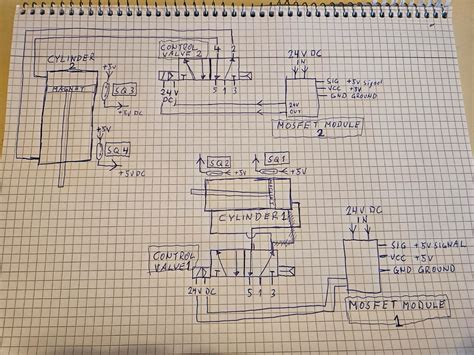 CYLINDER
2
MAGNET
+5V
SQ3
+5V DC
SQ4
+5V DC
CONTROL
VALVE 2
4 2
24V
DC
5 1 3
24V DC
IN
SIG +5V Signal
VCC +5V
GND GROUND
24V
OUT
MOSFET MODULE
2
SQ2
SQ1
+5V
+5V
CYLINDER 1
CONTROL
VALVE 1
24V DC
5 1 3
24V DC
IN
SIG +5V SIGNAL
VCC +5V
GND GROUND
MOSFET MODULE
1